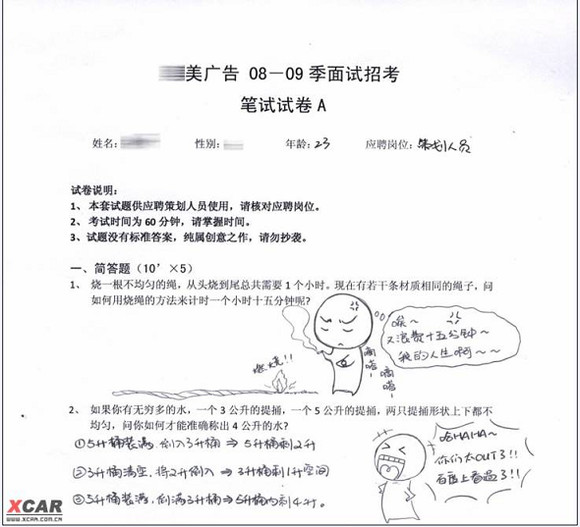 美广告 08－09 季面试招考
笔试试卷 A
姓名： 性别： 年龄：23 应聘岗位：策划人员
试卷说明：
1、 本套试题供应聘策划人员使用，请核对应聘岗位。
2、 考试时间为 60 分钟，请掌握时间。
3、 试题没有标准答案，纯属创意之作，请勿抄袭。
一、简答题（10’×5）
1、 烧一根不均匀的绳，从头烧到尾总共需要 1 个小时。现在有若干条材质相同的绳子，问
如何用烧绳的方法来计时一个小时十五分钟呢？
唉～
又浪费十五分钟～
我的人生啊～～
嘀嗒～
嘀嗒～
燃烧!!
2、 如果你有无穷多的水，一个 3 公升的提捅，一个 5 公升的提捅，两只提捅形状上下都不
均匀，问你如何才能准确称出 4 公升的水？
①5升桶装满，倒入3升桶⇒5升桶剩2升
②3升桶清空，将2升倒入⇒3升桶剩1升空间
③5升桶装满，倒满3升桶⇒5升桶内剩4升。
哈HAHA～
你们太OUT了!!
百度上看过了!!
XCAR
WWW.XCAR.COM.CN